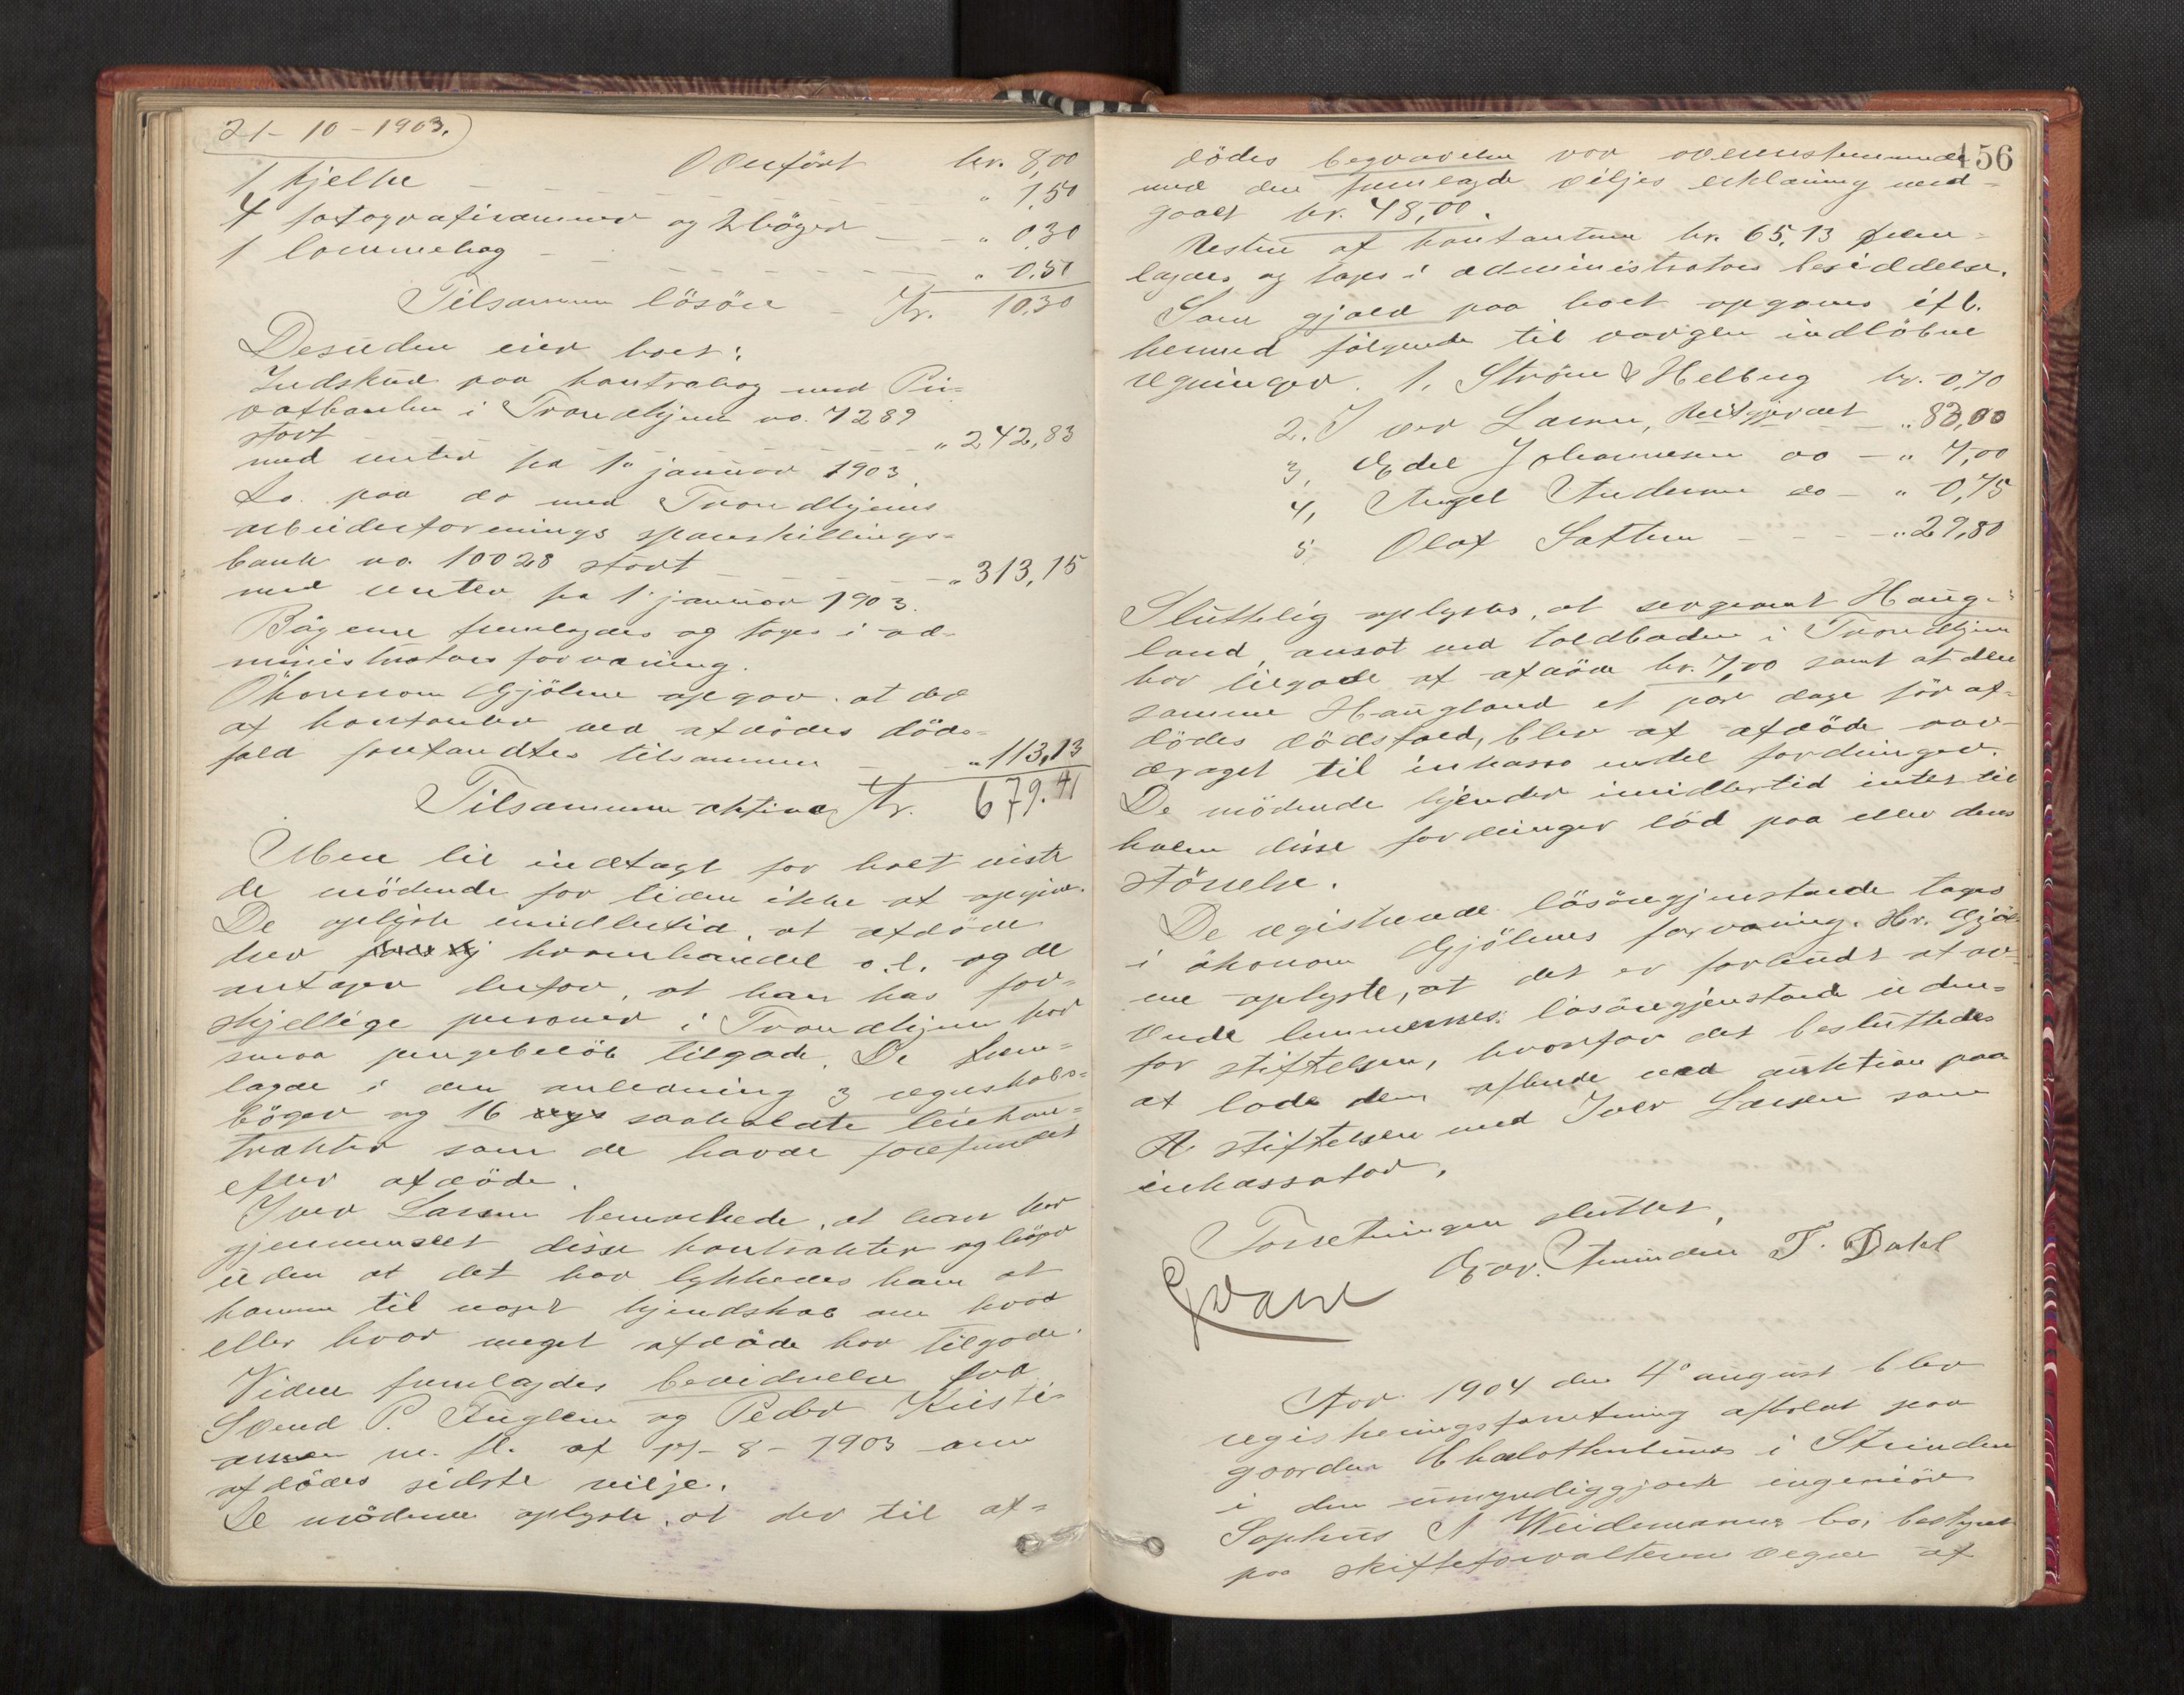 21-10-1903.
Overført kr. 8,00
1 kjelke - - - - " 1,50
4 fotografirammer og 2 bøger - - " 0,30
1 lommebog - - - - " 0.50
Tilsammen løsøre - Kr. 10.30
Desuden eier boet:
Indskud paa kontrabog med Pri-
vatbanken i Trondhjem no. 7289
stort - - - - " 242,83
med renter fra 1ste januar 1903
Do. paa do med Trondhjems
arbeiderforenings spareskillings-
bank no. 10028 stort - - - - " 313,15
med renter fra 1' januar 1903.
Bøgerne fremlagdes og toges i ad-
ministrators forvaring.
Økonom Gjølme opgav at der
af kontanter ved afdødes døds-
fald forefandtes tilsammen - " 113,13
Tilsammen aktiva Kr. 679.41
Mere til indtægt for boet viste
de mødende for tiden ikke at opgive.
De oplyste imidlertid, at afdøde
drev hornhandel o.l. og de
antager derfor, at han hos for-
skjellige personer i Trondhjem har
smaa pengebeløb tilgode. De frem-
lagde i den anledning 3 regnskabs-
bøger og 16 saakaldte leiekon-
trakter som de havde forefundet
efter afdøde.
Iver Larsen bemerkede, at han har
gjennemseet disse kontrakter og bøger
uden at det har lykkedes ham at
komme til noget kjendskab om hvad
eller hvor meget afdøde har tilgode.
Videre fremlagdes bevidnelse fra
Svend P. Fuglem og Peder Kristi-
ansen m. fl. af 17-8-1903 om
afdødes sidste vilje.
De mødende oplyste, at der til af-
156
dødes begravelse var overensstemmende
med den fremlagde viljes erklæring med-
gaaet kr. 48,00.
Resten af kontanterne kr. 65,13 frem-
lagdes og toges i administrators besiddelse.
Som gjæld paa boet opgaves ifl.
hermed følgende til værgen indløbne
regninger. 1. Strøm & Helberg kr. 0,70
2. Iver Larsen, Reitgjærdet - " 83,00
3, Edel Johannesen do - " 7,00
4, Angel Andersen do - " 0,75
5, Olaf Sathren - - - " 29,80
Sluttelig oplystes, at sergeant Haug-
land, ansat ved toldboden i Trondhjem
har tilgode af afdøde kr. 7,00 samt at den
samme Haugland et par dage før af-
dødes dødsfald, blev af afdøde over-
draget til inkasso endel fordringer.
De mødende kjender imidlertid intet til
hvem disse fordringer lød paa eller deres
størrelse.
De registrerede løsøregjenstande toges
i økonom Gjølmes forvaring. Hr. Gjøl-
me oplyste, at det er forbudt at av-
ende lemmernes løsøregjenstande uden-
for stiftelsen, hvorfor det besluttedes
at lade dem afhende ved auktion paa
R. stiftelsen med Iver Larsen som
inkassator.
Forretningen sluttet.
T. Dahl
Aar 1904 den 4de august blev
registreringsforretning afholdt paa
gaarden Charlottenlund i Strinden
i den umyndiggjorte ingeniør
Sophus A Weidemanns bo, bestyret
paa skifteforvalterens vegne af